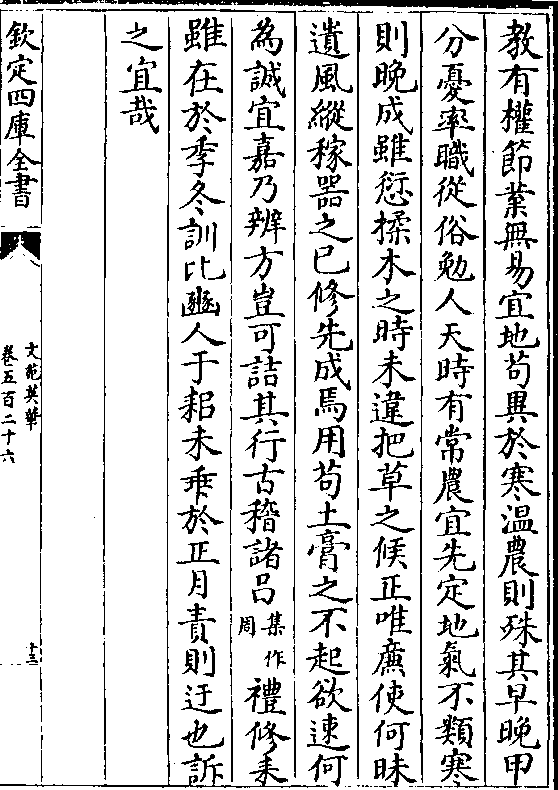 教有權節業無易宜地苟異於寒温農則殊其早晚甲
分憂率職從俗勉人天時有常農宜先定地氣不類寒
則晚成雖愆揉木之時未違把草之候正唯廉使何昧
遺風縱稼器之已修先成焉用苟土膏之不起欲速何
為誠宜嘉乃辨方豈可詰其行古稽諸吕集作周禮修耒
雖在於季冬訓比豳人于耜未乖於正月責則迂也訴
之宜哉
欽定四庫全書
文苑英華
卷五百二十六
十三